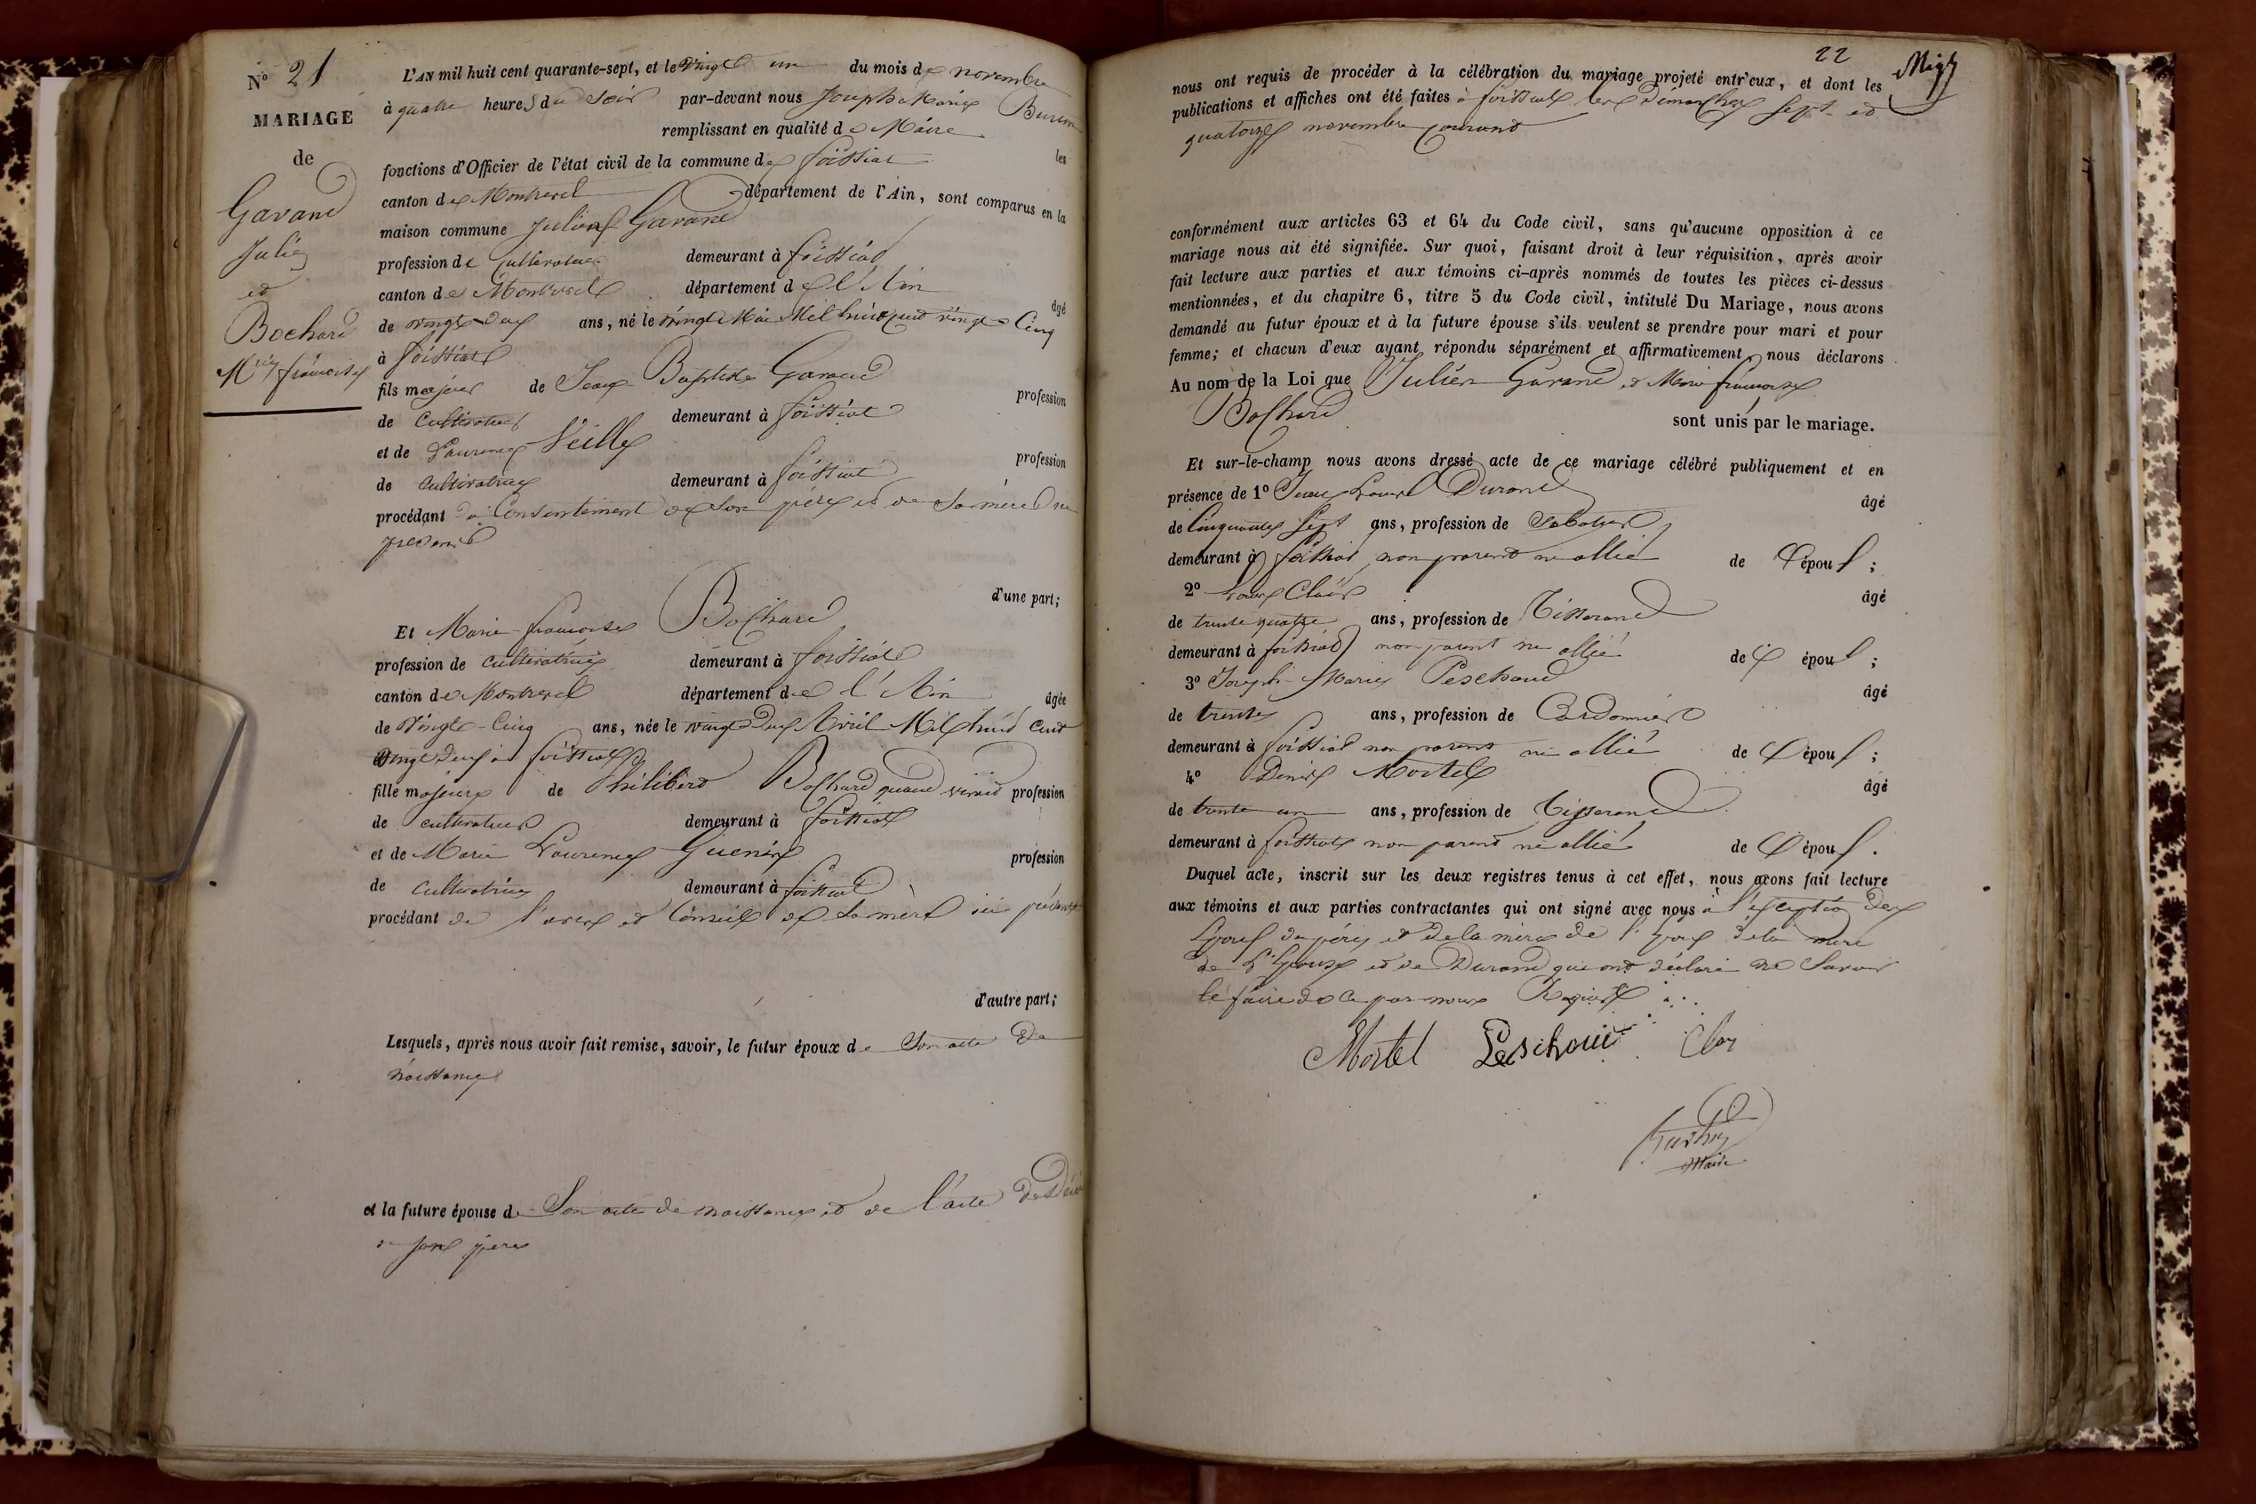 N° 21
MARIAGE
de
Gavand
Julien
et
Bochard
Mie françoise
L'AN mil huit cent quarante-sept, et le vingt un du mois de novembre
à quatre heures du soir par-devant nous Joseph Marie
remplissant en qualité de Maire les
fonctions d'Officier de l'état civil de la commune de foissiat
canton de Montrevel département de l'Ain, sont comparus en la
maison commune Julien Gavand
profession de cultivateur demeurant à foissiat
canton de Montrevel département de l'Ain âgé
de vingt deux ans, né le vingt Mai Mil huit cent vingt Cinq
à foissiat
fils majeur de Jean Baptiste Gavand profession
de cultivateur demeurant à foissiat
et de Laurence Veille profession
de cultivatrice demeurant à foissiat
procédant du Consentement de son père et de sa mère
présents
d'une part;
Et Marie françoise Bochard
profession de cultivatrice demeurant à foissiat
canton de Montrevel département de l'Ain âgée
de vingt-Cinq ans, née le vingt deux Avril Mil huit cent
vingt deux à foissiat
fille majeure de Philibert Bochard quand vivait profession
de cultivateur demeurant à foissiat
et de Marie Laurence Guenin profession
de cultivatrice demeurant à foissiat
procédant de l'avis et Conseil de sa mère ici présente
d'autre part;
Lesquels, après nous avoir fait remise, savoir, le futur époux de Son acte de
naissance
et la future épouse de Son acte de naissance et de l'acte de décès
de son père
22
nous ont requis de procéder à la célébration du mariage projeté entr'eux, et dont les
publications et affiches ont été faites à foissiat les dimanches sept et
quatorze novembre courant
conformément aux articles 63 et 64 du Code civil, sans qu'aucune opposition à ce
mariage nous ait été signifiée. Sur quoi, faisant droit à leur réquisition, après avoir
fait lecture aux parties et aux témoins ci-après nommés de toutes les pièces ci-dessus
mentionnées, et du chapitre 6, titre 5 du Code civil, intitulé Du Mariage, nous avons
demandé au futur époux et à la future épouse s'ils veulent se prendre pour mari et pour
femme; et chacun d'eux ayant répondu séparément et affirmativement nous déclarons
Au nom de la Loi que Julien Gavand et Marie françoise
Bochard sont unis par le mariage.
Et sur-le-champ nous avons dressé acte de ce mariage célébré publiquement et en
présence de 1° Jean Louis Durand âgé
de Cinquante sept ans, profession de Sabotier
demeurant à foissiat non parent ni allié de l'époux;
2° Louis Clair âgé
de trente quatre ans, profession de Tisserand
demeurant à foissiat non parent ni allié de l'époux;
3° Joseph Marie Peschoud âgé
de trente ans, profession de Cordonnier
demeurant à foissiat non parent ni allié de l'époux;
4° Denis Mortel âgé
de trente un ans, profession de Tisserand
demeurant à foissiat non parent ni allié de l'époux.
Duquel acte, inscrit sur les deux registres tenus à cet effet, nous avons fait lecture
aux témoins et aux parties contractantes qui ont signé avec nous à l'exception des
époux du père et de la mère de l'époux de la mère
de l'épouse et de Durand qui ont déclaré ne savoir
le faire de ce par nous Requis
Mortel Peschoud
Maire